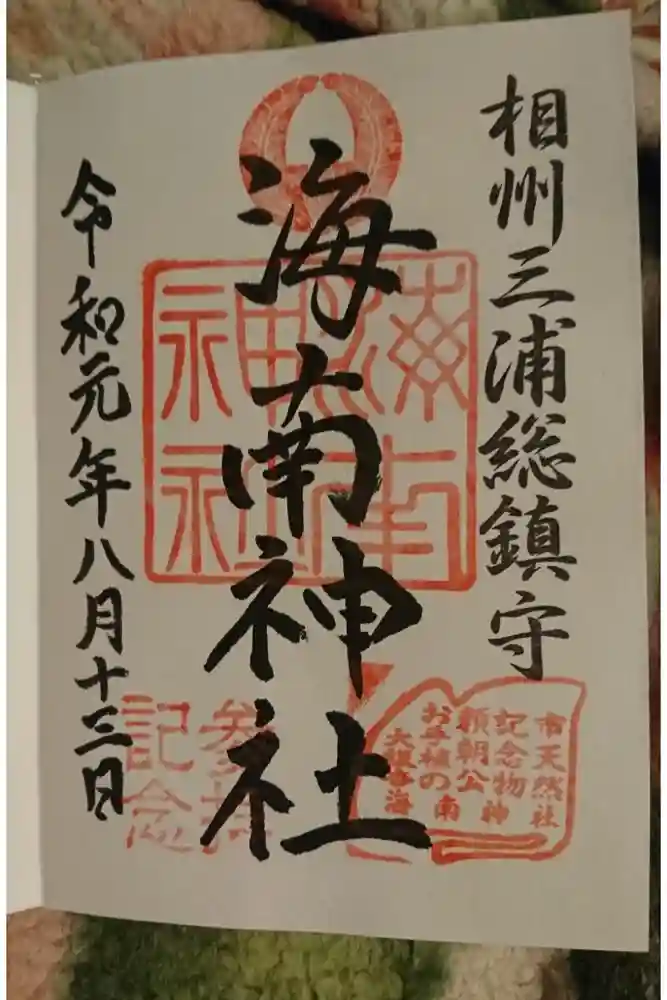 相州三浦総鎮守
海南神社
令和元年八月十三日
海南
神社
市天然
記念物
頼朝公
お手植の
大銀杏
海南神社
参拝
記念